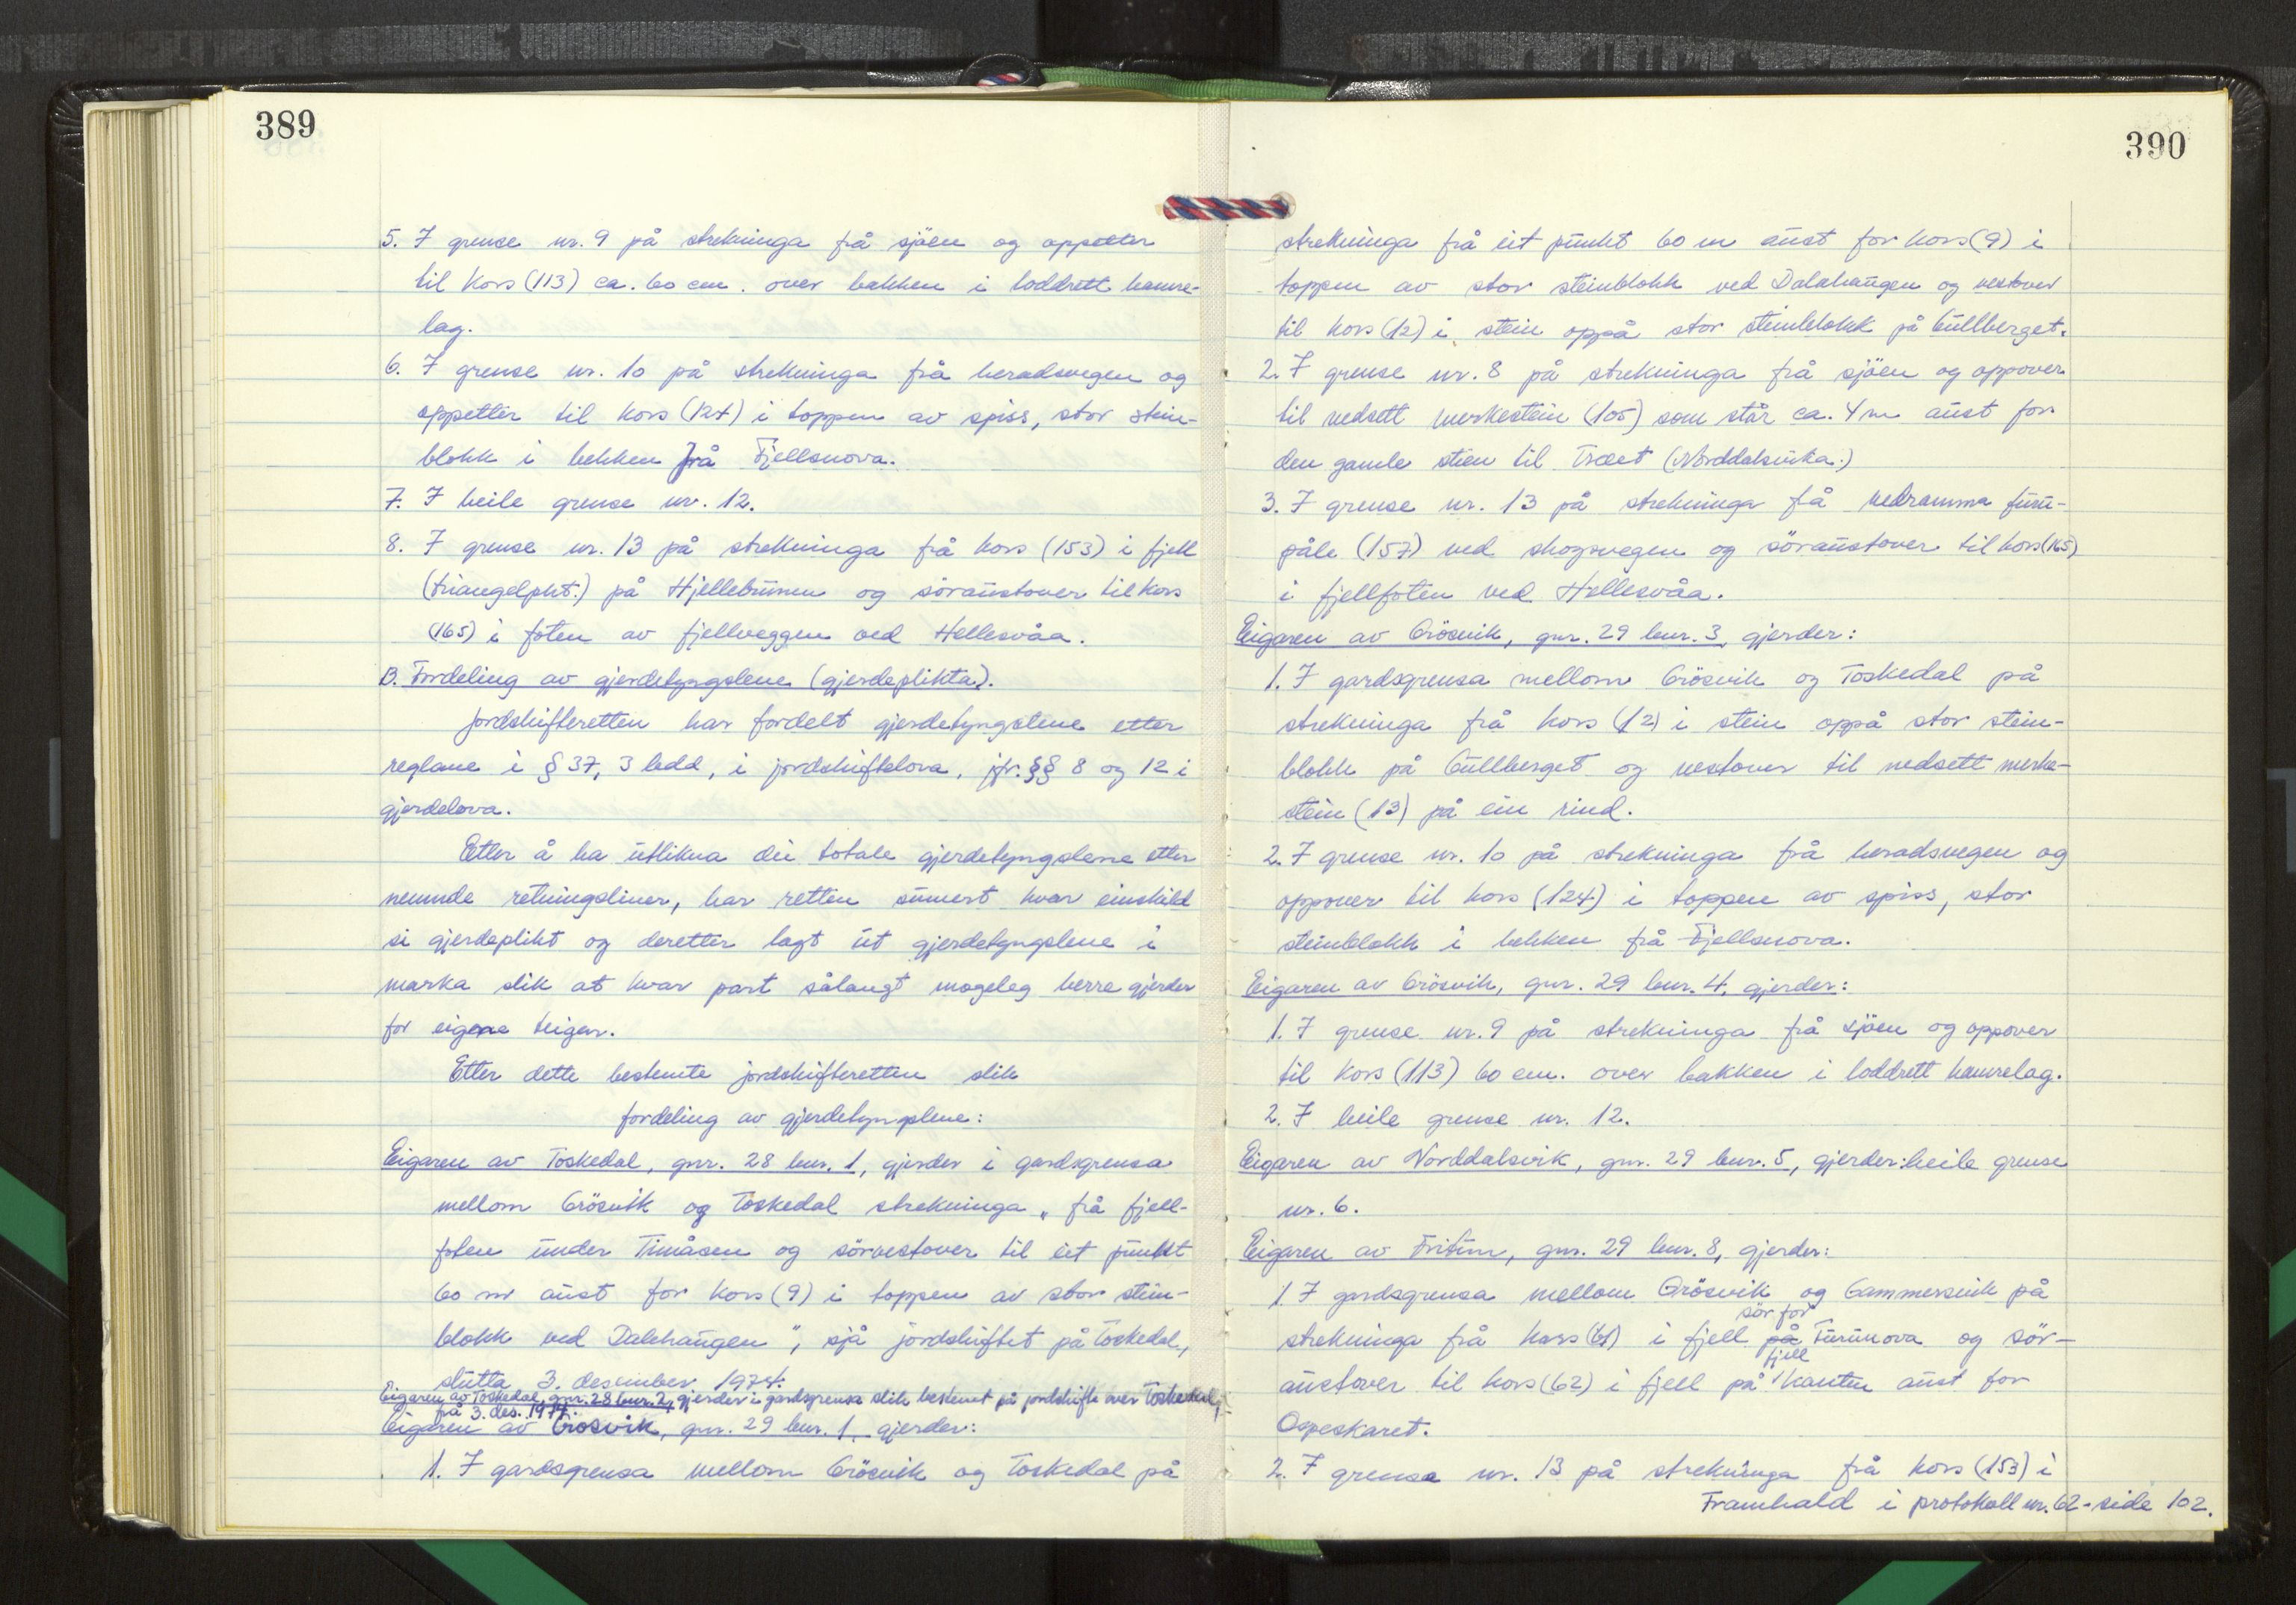 389
5. I grense nr. 9 på strekninga frå sjöen og oppetter
til kors (113) ca. 60 cm. over bakken i loddrett hamre-
lag.
6. I grense nr. 10 på strekninga frå heradsvegen og
oppetter til kors (124) i toppen av spiss, stor stein-
blokk i bekken frå Fjellsnova.
7. I heile grense nr. 12.
8. I grense nr. 13 på strekninga frå kors (153) i fjell
(triangelpkt.) på Hjellebrunen og söraustover til kors
(165) i foten av fjellveggen ved Hellesvåa.
B. Fordeling av gjerdetyngslene (gjerdeplikta).
Jordskifteretten har fordelt gjerdetyngslene etter
reglane i § 37, 3 ledd, i jordskiftelova, jfr. §§ 8 og 12 i
gjerdelova.
Etter å ha utlikna dei totale gjerdetyngslene etter
nemnde retningsliner, har retten sumert kvar einskild
si gjerdeplikt og deretter lagt ut gjerdetyngslene i
marka slik at kvar part sålangt mogeleg berre gjerder
for eigne teigar.
Etter dette bestemte jordskifteretten slik
fordeling av gjerdetyngslene:
Eigaren av Toskedal, gnr. 28 bnr. 1, gjerder i gardsgrensa
mellom Grösvik og Toskedal strekninga „frå fjell-
foten under Timåsen og sörvestover til eit punkt
60 m aust for kors (9) i toppen av stor stein-
blokk ved Dalehaugen", sjå jordskiftet på Toskedal,
slutta 3. desember 1974.
Eigaren av Toskedal, gnr. 28 bnr. 2, gjerder i gardsgrensa slik bestemt på jordskifte over Toskedal,
frå 3. des. 1974.
Eigaren av Grösvik, gnr. 29 bnr. 1, gjerder:
1. I gardsgrensa mellom Grösvik og Toskedal på
390
strekninga frå eit punkt 60 m aust for kors (9) i
toppen av stor steinblokk ved Dalahaugen og vestover
til kors (12) i stein oppå stor steinblokk på Gullberget.
2. I grense nr. 8 på strekninga frå sjöen og oppover
til nedsett merkestein (105) som står ca. 4 m aust for
den gamle stien til Træet (Norddalsvika.)
3. I grense nr. 13 på strekninga få nedramma furu-
påle (157) ved skogsvegen og söraustover til kors (165)
i fjellfoten ved Hellesvåa.
Eigaren av Grösvik, gnr. 29 bnr. 3, gjerder:
1. I gardsgrensa mellom Grösvik og Toskedal på
strekninga frå kors (12) i stein oppå stor stein-
blokk på Gullberget og vestover til nedsett merke-
stein (13) på ein rind.
2. I grense nr. 10 på strekninga frå heradsvegen og
oppover til kors (124) i toppen av spiss, stor
steinblokk i bekken frå Fjellsnova.
Eigaren av Grösvik, gnr. 29 bnr. 4, gjerder:
1. I grense nr. 9 på strekninga frå sjöen og oppover
til kors (113) 60 cm. over bakken i loddrett hamrelag.
2. I heile grense nr. 12.
Eigaren av Norddalsvik, gnr. 29 bnr. 5, gjerder: heile grense
nr. 6.
Eigaren av Fritun, gnr. 29 bnr. 8, gjerder:
1. I gardsgrensa mellom Grösvik og Gammersvik på
sör for
strekninga frå kors (61) i fjell på Furunova og sör-
fjell
austover til kors (62) i fjell på kanten aust for
Ospeskaret.
2. I grensa nr. 13 på strekninga frå kors (153) i
Framhald i protokoll nr. 62 - side 102.